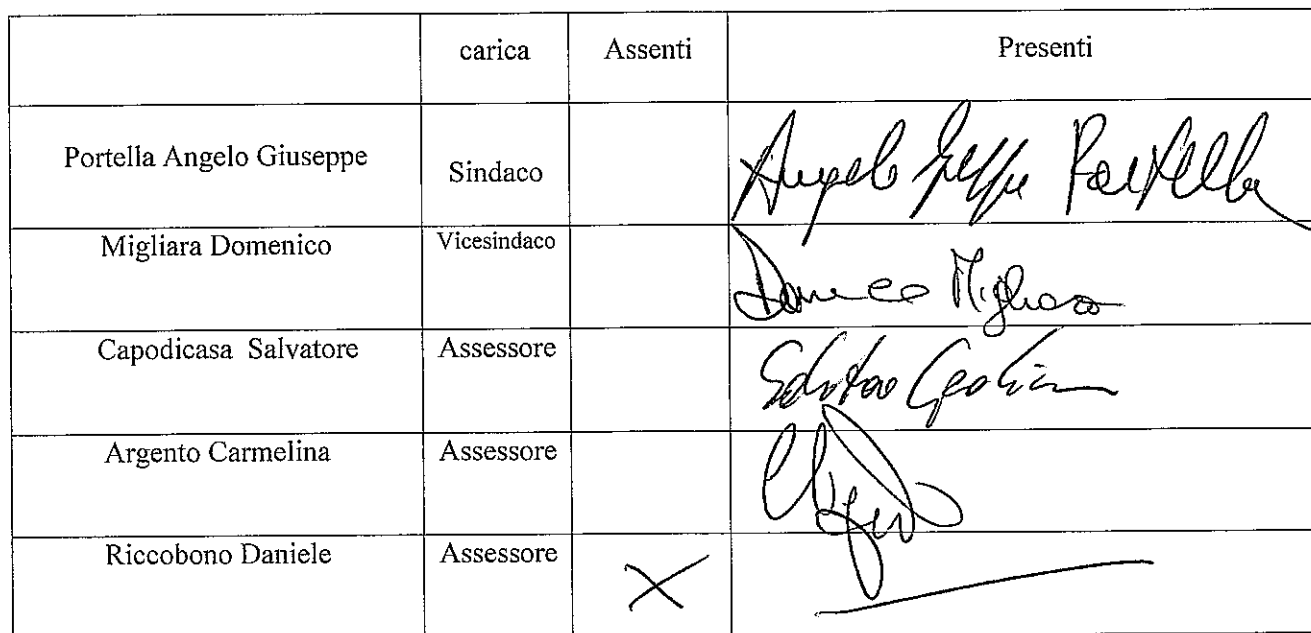 carica Assenti Presenti
Portella Angelo Giuseppe Sindaco Angelo Portella
Migliara Domenico Vicesindaco Domenico Migliara
Capodicasa Salvatore Assessore
Argento Carmelina Assessore
Riccobono Daniele Assessore X